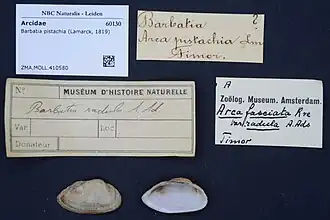 NBC Naturalis - Leiden
Arcidae 60130
Barbatia pistachia (Lamarck, 1819)
ZMA.MOLL.410580
?
Barbatia
Arca pistachia Lm
Timor.
MUSÉUM D'HISTOIRE NATURELLE
No
Barbatia radula A. Ad
Var
Loc
Donateur
A
Zoölog. Museum. Amsterdam.
Arca fasciata Rve
var radula A. Ads
Timor